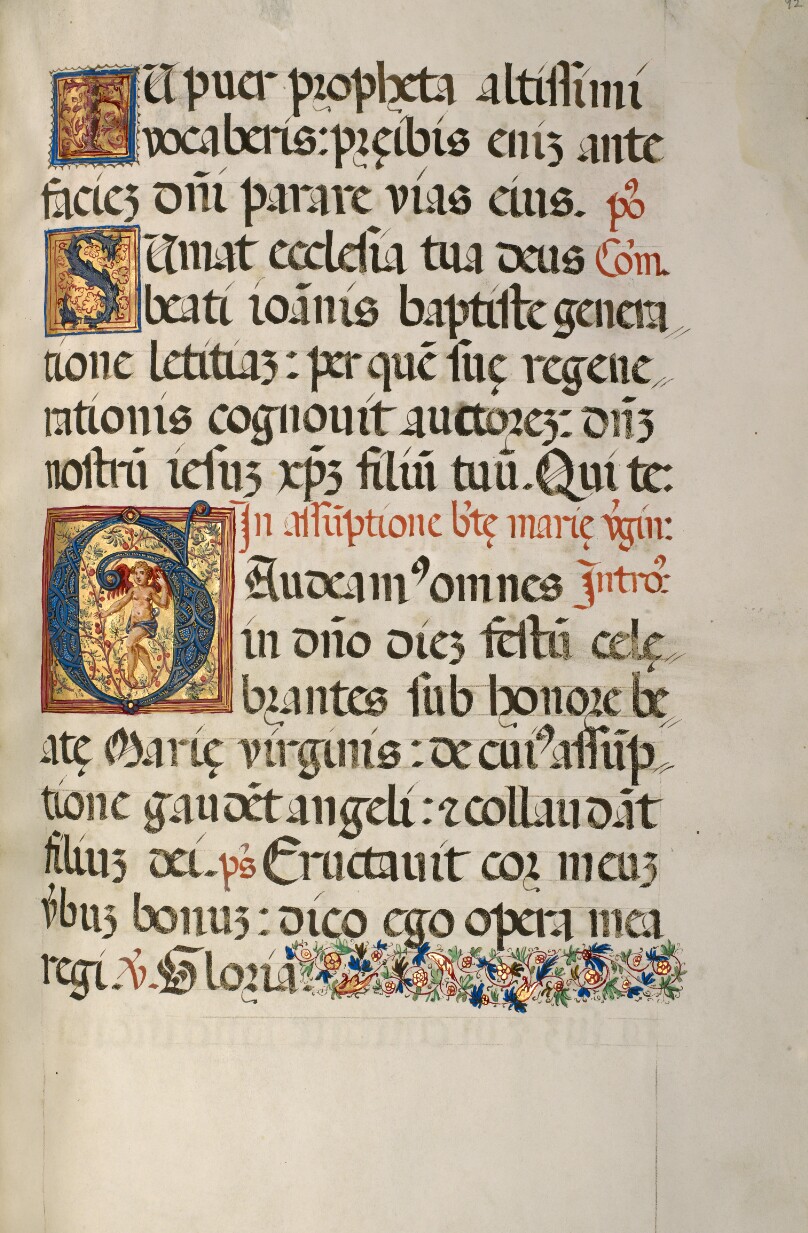 92
TU puer propheta altissimi
vocaberis: pręibis eniʒ ante
facieʒ dn̄i parare vias eius. po᷒
SUmat ecclesia tua deus Com̄.
beati ioānis baptiste genera〃
tione letitiaʒ: per quē suę regene〃
rationis cognouit auctoreʒ: dn̄ʒ
nostrū iesuʒ xp̄ʒ filiū tuū. Qui te:
In assūptione bt̄ę marię v̄gin:
GAudeamꝰ omnes Introꝰ:
in dn̄o dieʒ festū celę〃
brantes sub honore be〃
atę Marię virginis: de cuiꝰ assūp〃
tione gaudēt angeli: ⁊ collaudāt
filiuʒ dei. ps̄ Eructauit cor meuʒ
v̄buʒ bonuʒ: dico ego opera mea
regi. ℣. Gloria.